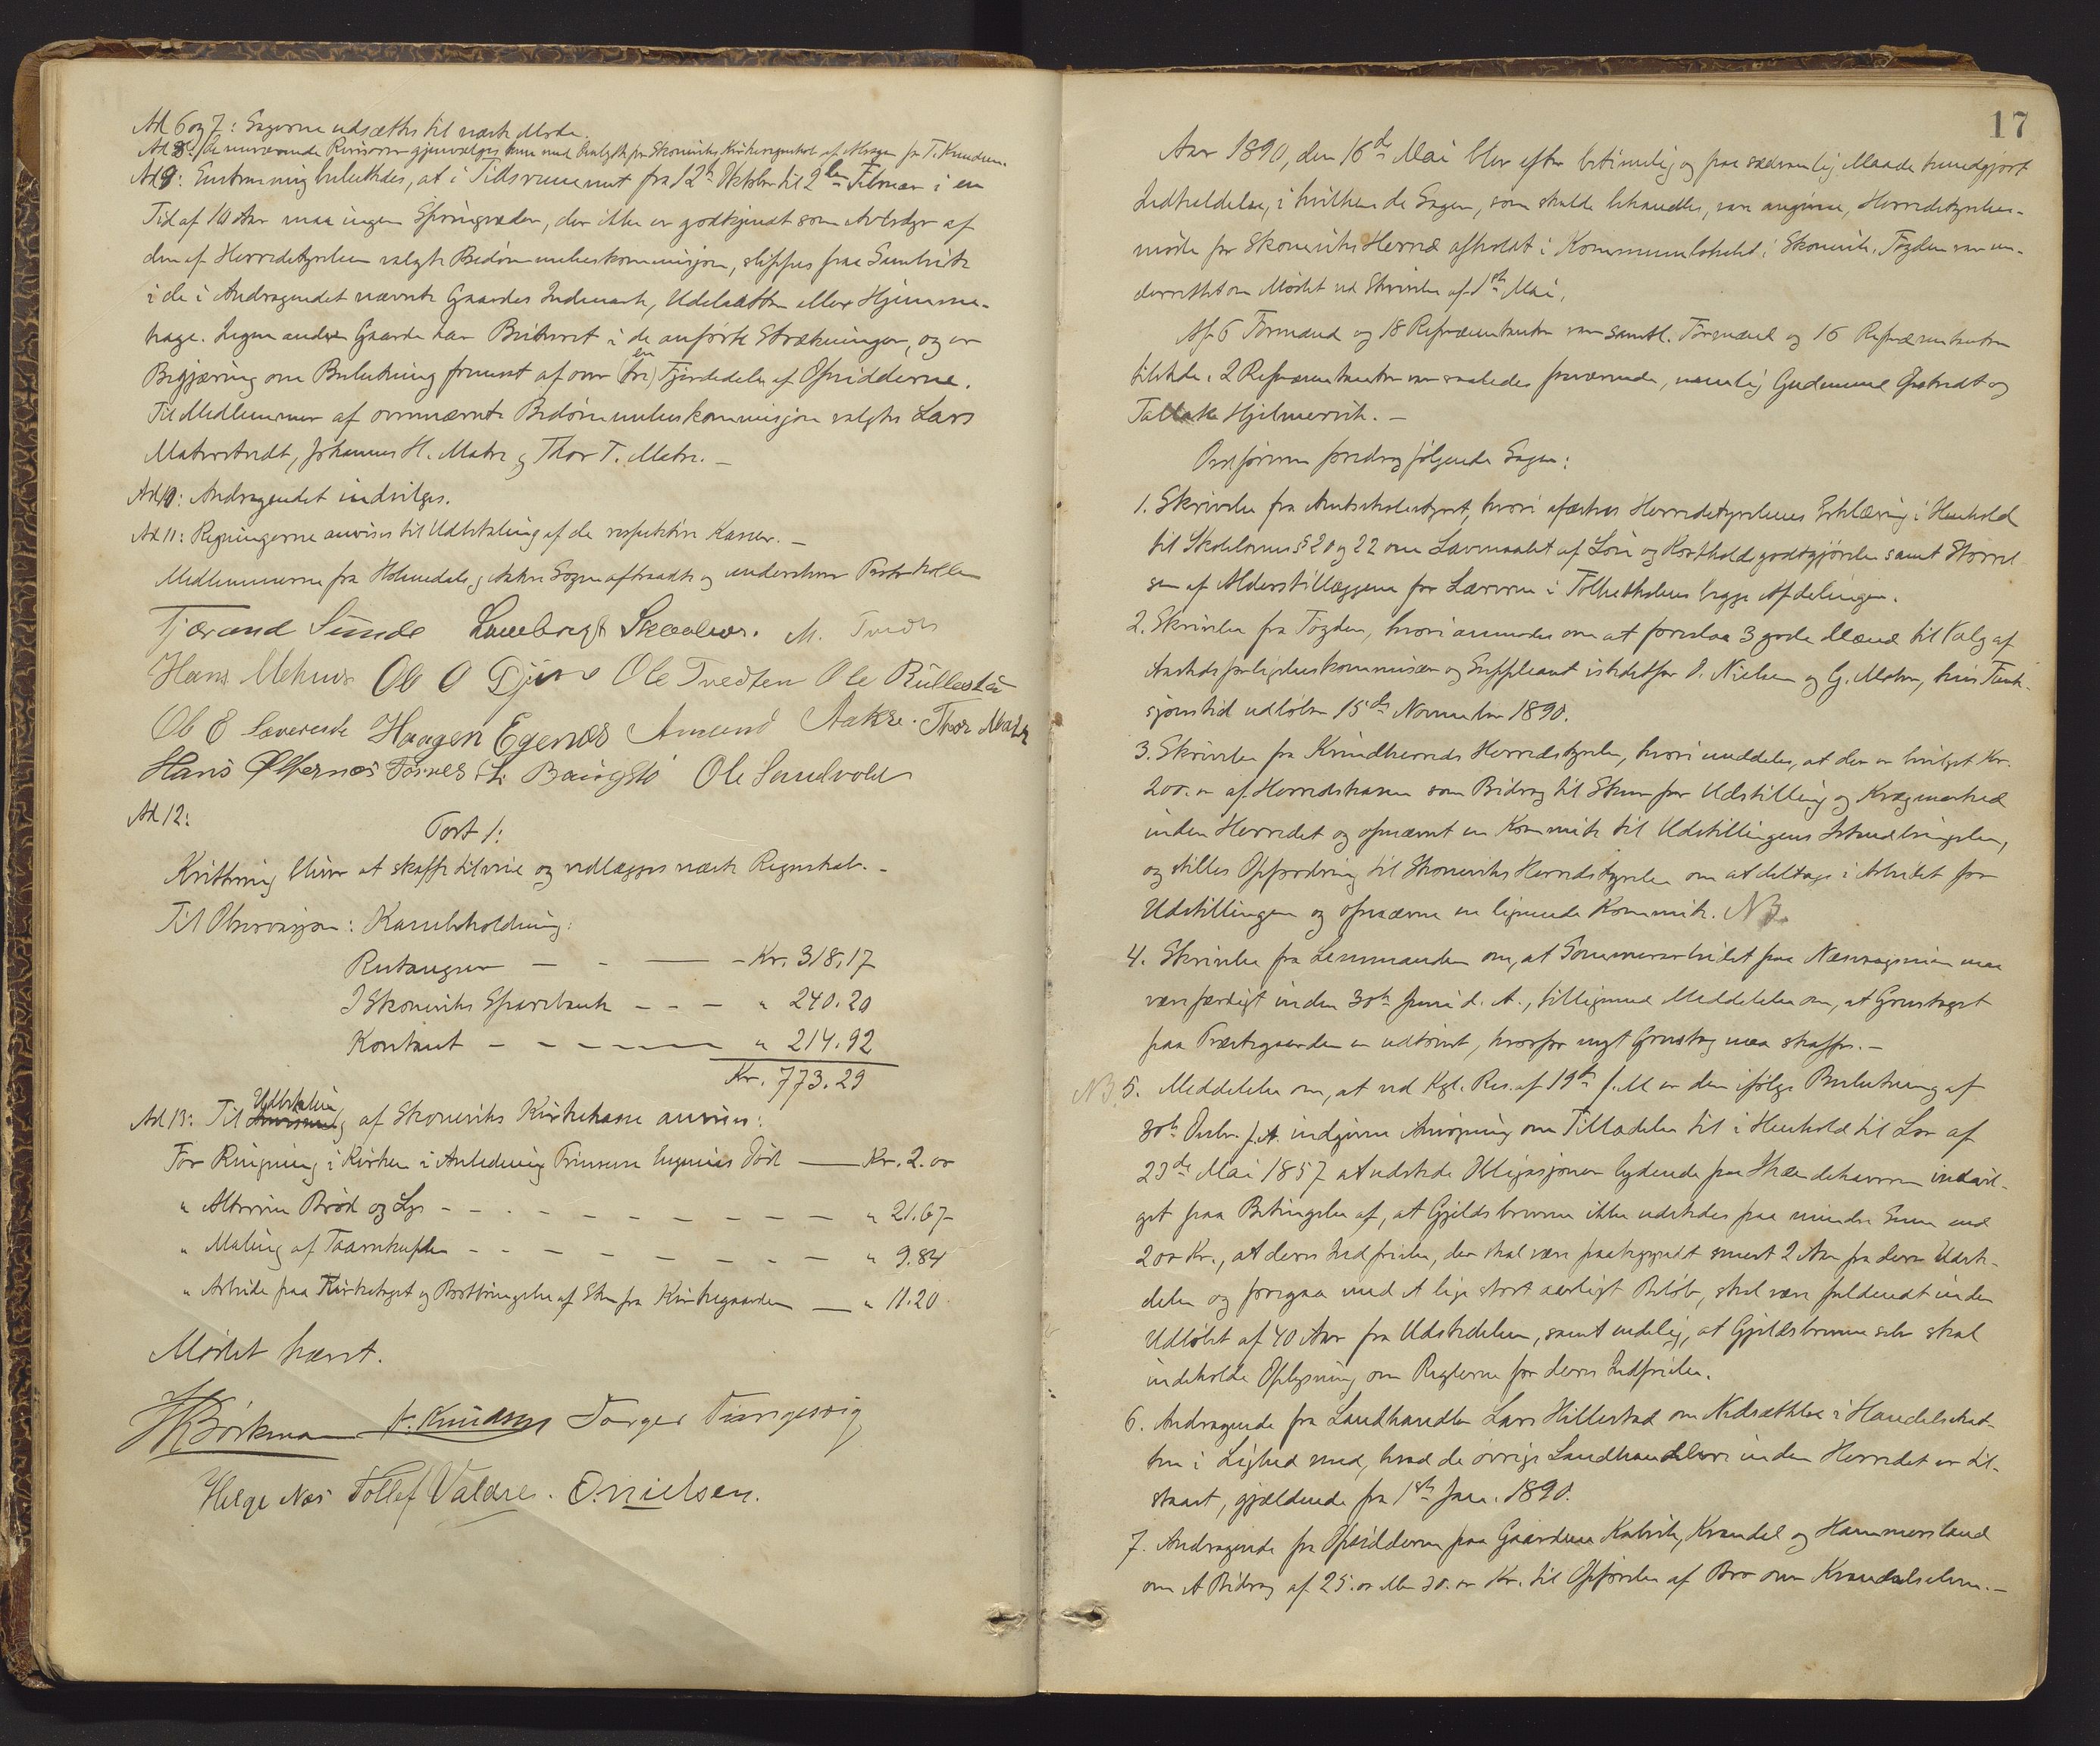 Ad 6 og 7: Sagerne udsættes til næste Møde.
Ad 8: De nuværende Revisorer gjenvælges kun med for Skoneviks Kirkeregnskab af Aksagen fr T. Knudsen.
Ad 9: Enstemmig besluttedes, at i Tidsrummet fra 12te Oktober til 2den Februar i en
Tid af 10 Aar maa ingen Springvæder, der ikke er godkjendt som Avlsdyr af
den af Herredsstyrelsen valgte Bedømmelseskommisjon, slippes paa Sambeite
i de i Andragendet nævnte Gaardes Indmark, Udslaatter eller Hjemme-
hage. Ingen anden Gaarde har Beiteret i de anførte Strækninger, og er
Begjæring om Beslutning fremsat af over (tre) en Fjerdedele af Opsidderne.
Til Medlemmer af ovennævnte Bedømmelseskommisjon valgtes Lars
Matrestredt, Johannes H. Matre og Thor T. Matre. –
Ad 10: Andragendet indvilges.
Ad 11: Regningerne anvises til Udbetaling af de respektive Kasser. –
Medlemmerne fra Holmedals og Aakre Sogne aftraadte og underskrev Protokollen
Tjærand Sunde Lambregt Skaalnes. M. Tvedt
Hans Mehus Ole O Djuve Ole Tvedten Ole Rullestad
Ole E Sævereide Haagen Egenæs Amund Aakre. Thor Matre
Hans Ølfernæs Tosnes H. Baugstø Ole Sandvold
Ad 12:
Post 1:
Kvittering bliver at skaffe tilveie og vedlægges næste Regnskab. –
Til Observasjon: Kassebeholdning:
Restanser – – – – Kr. 318,17
I Skoneviks Sparebank – – – " 240.20
Kontant – – – – – " 214.92
Kr. 773.29
Ad 13: Til Udbetaling af Skoneviks Kirkekasse anvises:
For Ringning i Kirken i Anledning Prinsesse Eugenies Død – Kr. 2.00
" Altervin Brød og Lys – – – – – – – – – " 21.67
" Maling af Taarnkuplen – – – – – – – " 9.84
" Arbeide paa Kirketaget og Bortbringelse af Sten fra Kirkegaarden – " 11.20
Mødet hævet.
H Børkman K. Knudsen Torger Tungesvig
Helge Næs Tollef Valdre. O. Nielsen.
17
Aar 1890, den 16de Mai blev efter betimelig og paa sædvanlig Maade kundgjort
Indkaldelse, i hvilken de Sager, som skulde behandles, var angivne, Herredsstyrelses-
møde for Skoneviks Herred afholdt i Kommunelokalet i Skonevik. Fogden var un-
derrettet om Mødet ved Skrivelse af 1ste Mai.
Af 6 Formænd og 18 Repræsentanter var samtl. Formænd og 16 Repræsentanter
tilstede. 2 Repræsentanter var saaledes fraværende, nemlig Gudmund Opstredt og
Tollak Hjelmervik. –
Ordføreren foredrog følgende Sager:
1. Skrivelse fra Amtsskolestyret, hvori afæskes Herredsstyrelsens Erklæring i Henhold
til Skolelovens § 20 og 22 om Lavmaalet af Løn og Kostholdsgodtgjørelse samt Størrel-
sen af Alderstillæggene for Lærerne i Folkeskolens begge Afdelinger.
2. Skrivelse fra Fogden, hvori anmodes om at foreslaa 3 gode Mænd til Valg af
Amtsforligelseskommissær og Suppleant istedetfor O. Nielsen og G. Matre, hvis Funk-
sjonstid udløber 15de November 1890.
3. Skrivelse fra Kvindherreds Herredsstyrelse, hvori meddeles, at der er bevilget Kr.
200.00 af Herredskassen som Bidrag til Skuer for Udstilling og Kvægmarked
inden Herredet og opnævnt en Komite til Udstillingens Istandbringelse,
og stilles Opfordring til Skoneviks Herredsstyrelse om at deltage i Arbeidet for
Udstillingen og opnævne en lignende Komite. NB.
4. Skrivelse fra Lensmanden om, at Sommerarbeidet paa Næsvegenien maa
være færdigt inden 30te Juni d. A., tilligemed Meddelelse om, at Grustaget
paa Prestegaarden er udtømt, hvorfor nyt Grustag maa skaffes. –
NB. 5. Meddelelse om, at ved Kgl. Res. af 19de f. M er den ifølge Beslutning af
30te Decbr. f. A. indgivne Ansøgning om Tilladelse til i Henhold til Lov af
23de Mai 1857 at udstede Obligasjoner lydende paa Ihændehaveren indvil-
get paa Betingelse af, at Gjeldsbrevene ikke udstedes paa mindre Sum end
200 Kr., at deres Indfrielse, der skal være paabegyndt senest 2 Aar fra deres Udste-
delse og foregaa med et lige stort aarligt Beløb, skal være fuldendt inden
Udløbet af 40 Aar fra Udstedelsen, samt endelig, at Gjeldsbrevene selv skal
indeholde Oplysning om Reglerne for deres Indfrielse.
6. Andragende fra Landhandler Lars Hillestad om Nedsættelse i Handelsskat-
ten i Lighed med, hvad de øvrige Landhandlere inden Herredet er til-
staaet, gjældende fra 1ste Jan. 1890.
7. Andragende fra Opsidderne paa Gaardene Kalvik, Kvandal og Hammersland
om et Bidrag af 25.00 eller 30.00 Kr. til Opførelse af Bro over Kvandalselven. –